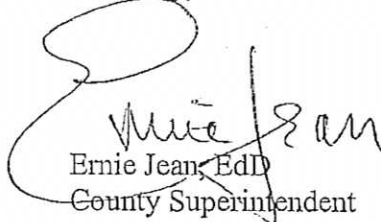 Ernie Jean
Ernie Jean, EdD
County Superintendent